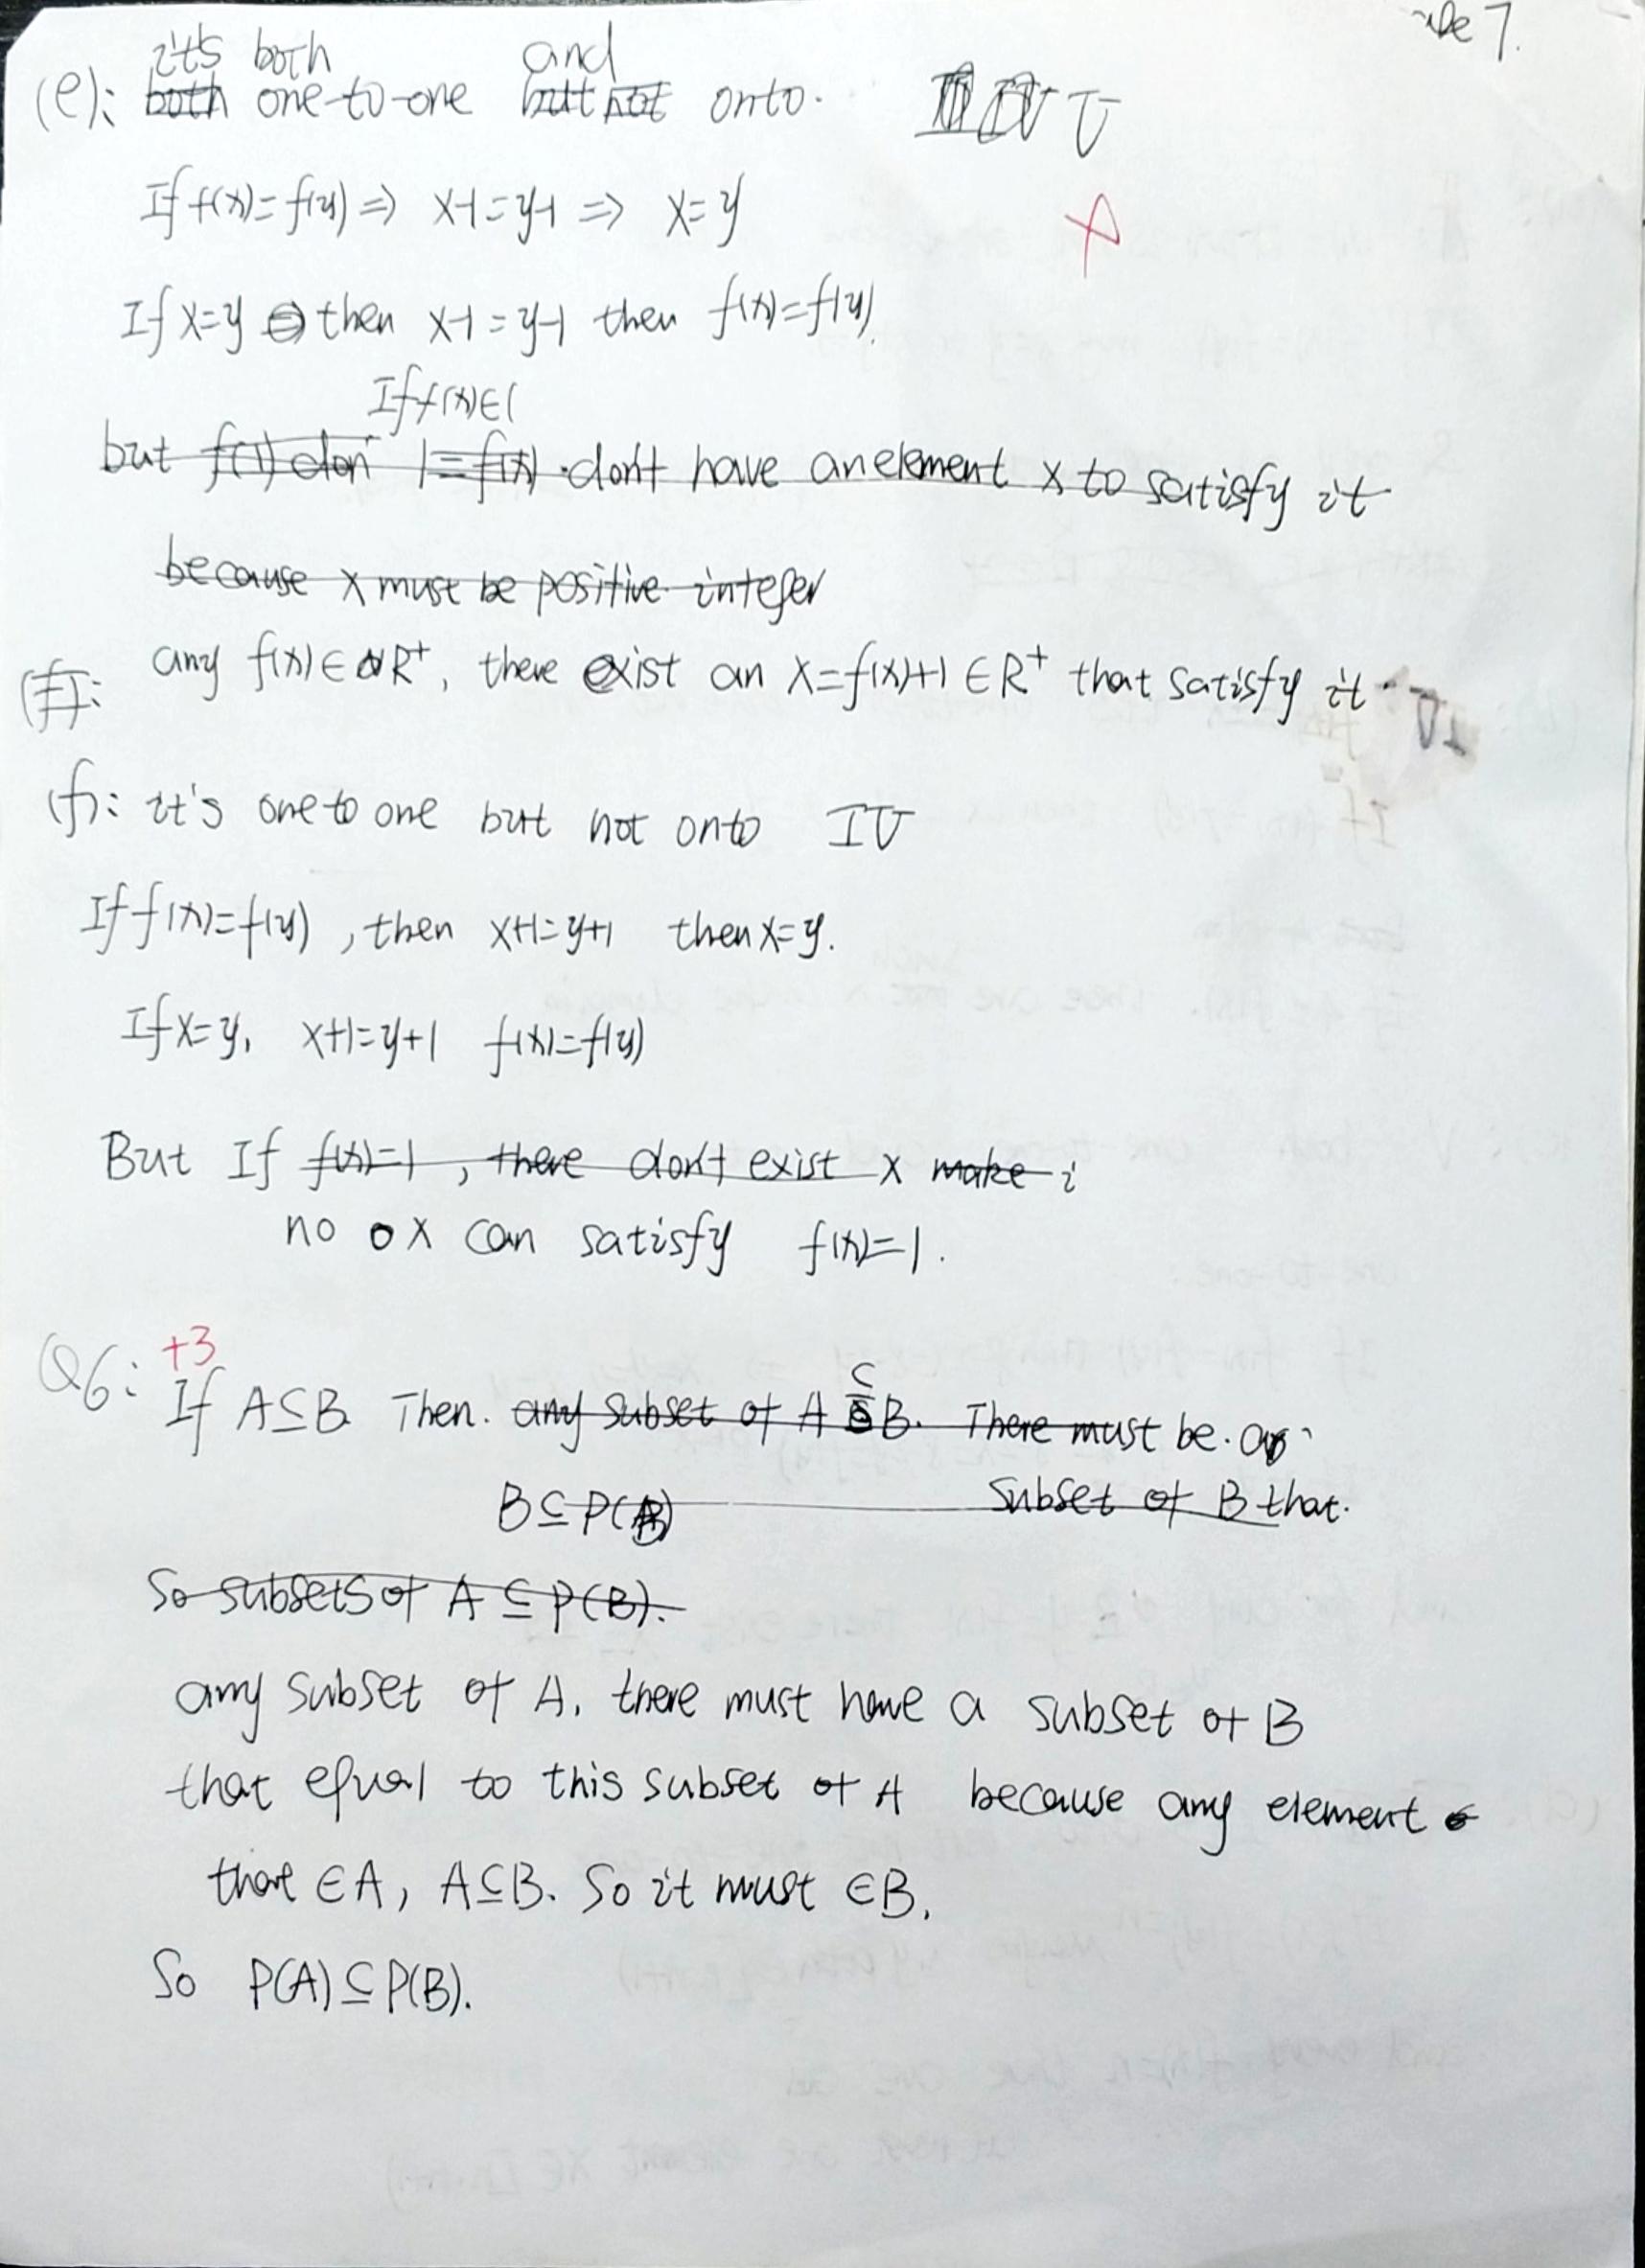 (e): it's both one-to-one and onto. V
If f(x)=f(y) ⇒ x-1=y-1 ⇒ x=y
If x=y then x-1=y-1 then f(x)=f(y).
If f(x)∈(
but f(1) don 1=f(x) don't have an element x to satisfy it
because x must be positive integer
any f(x)∈R⁺, there exist an x=f(x)+1 ∈R⁺ that satisfy it.
(f): it's one to one but not onto IV
If f(x)=f(y), then x+1=y+1 then x=y.
If x=y, x+1=y+1 f(x)=f(y)
But If f(x)=1, there don't exist x make i
no x can satisfy f(x)=1.
Q6: +3
If A⊆B Then. any subset of A ⊆ B. There must be a
B⊆P(B) subset of B that.
So subsets of A ⊆ P(B).
any subset of A, there must have a subset of B
that equal to this subset of A because any element
that ∈A, A⊆B. So it must ∈B.
So P(A)⊆P(B).